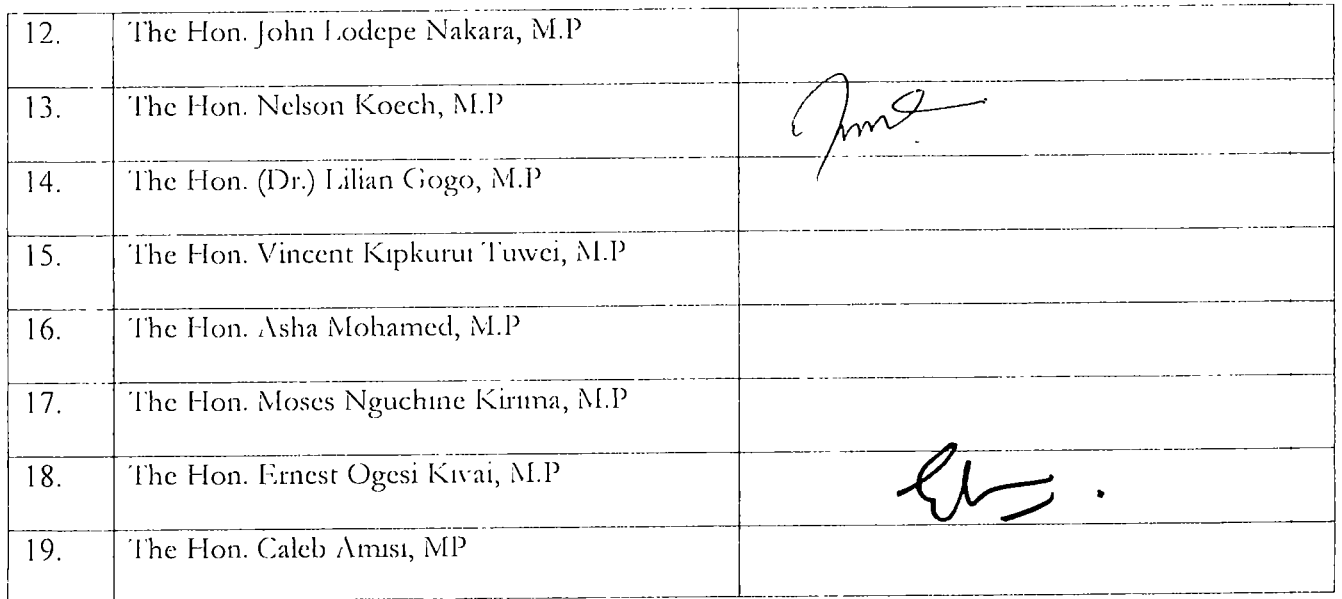 12. The Hon. John Lodepe Nakara, M.P
13. The Hon. Nelson Koech, M.P
14. The Hon. (Dr.) Lilian Gogo, M.P
15. The Hon. Vincent Kipkurui Tuwei, M.P
16. The Hon. Asha Mohamed, M.P
17. The Hon. Moses Nguchine Kirima, M.P
18. The Hon. Ernest Ogesi Kivai, M.P
19. The Hon. Caleb Amisi, MP